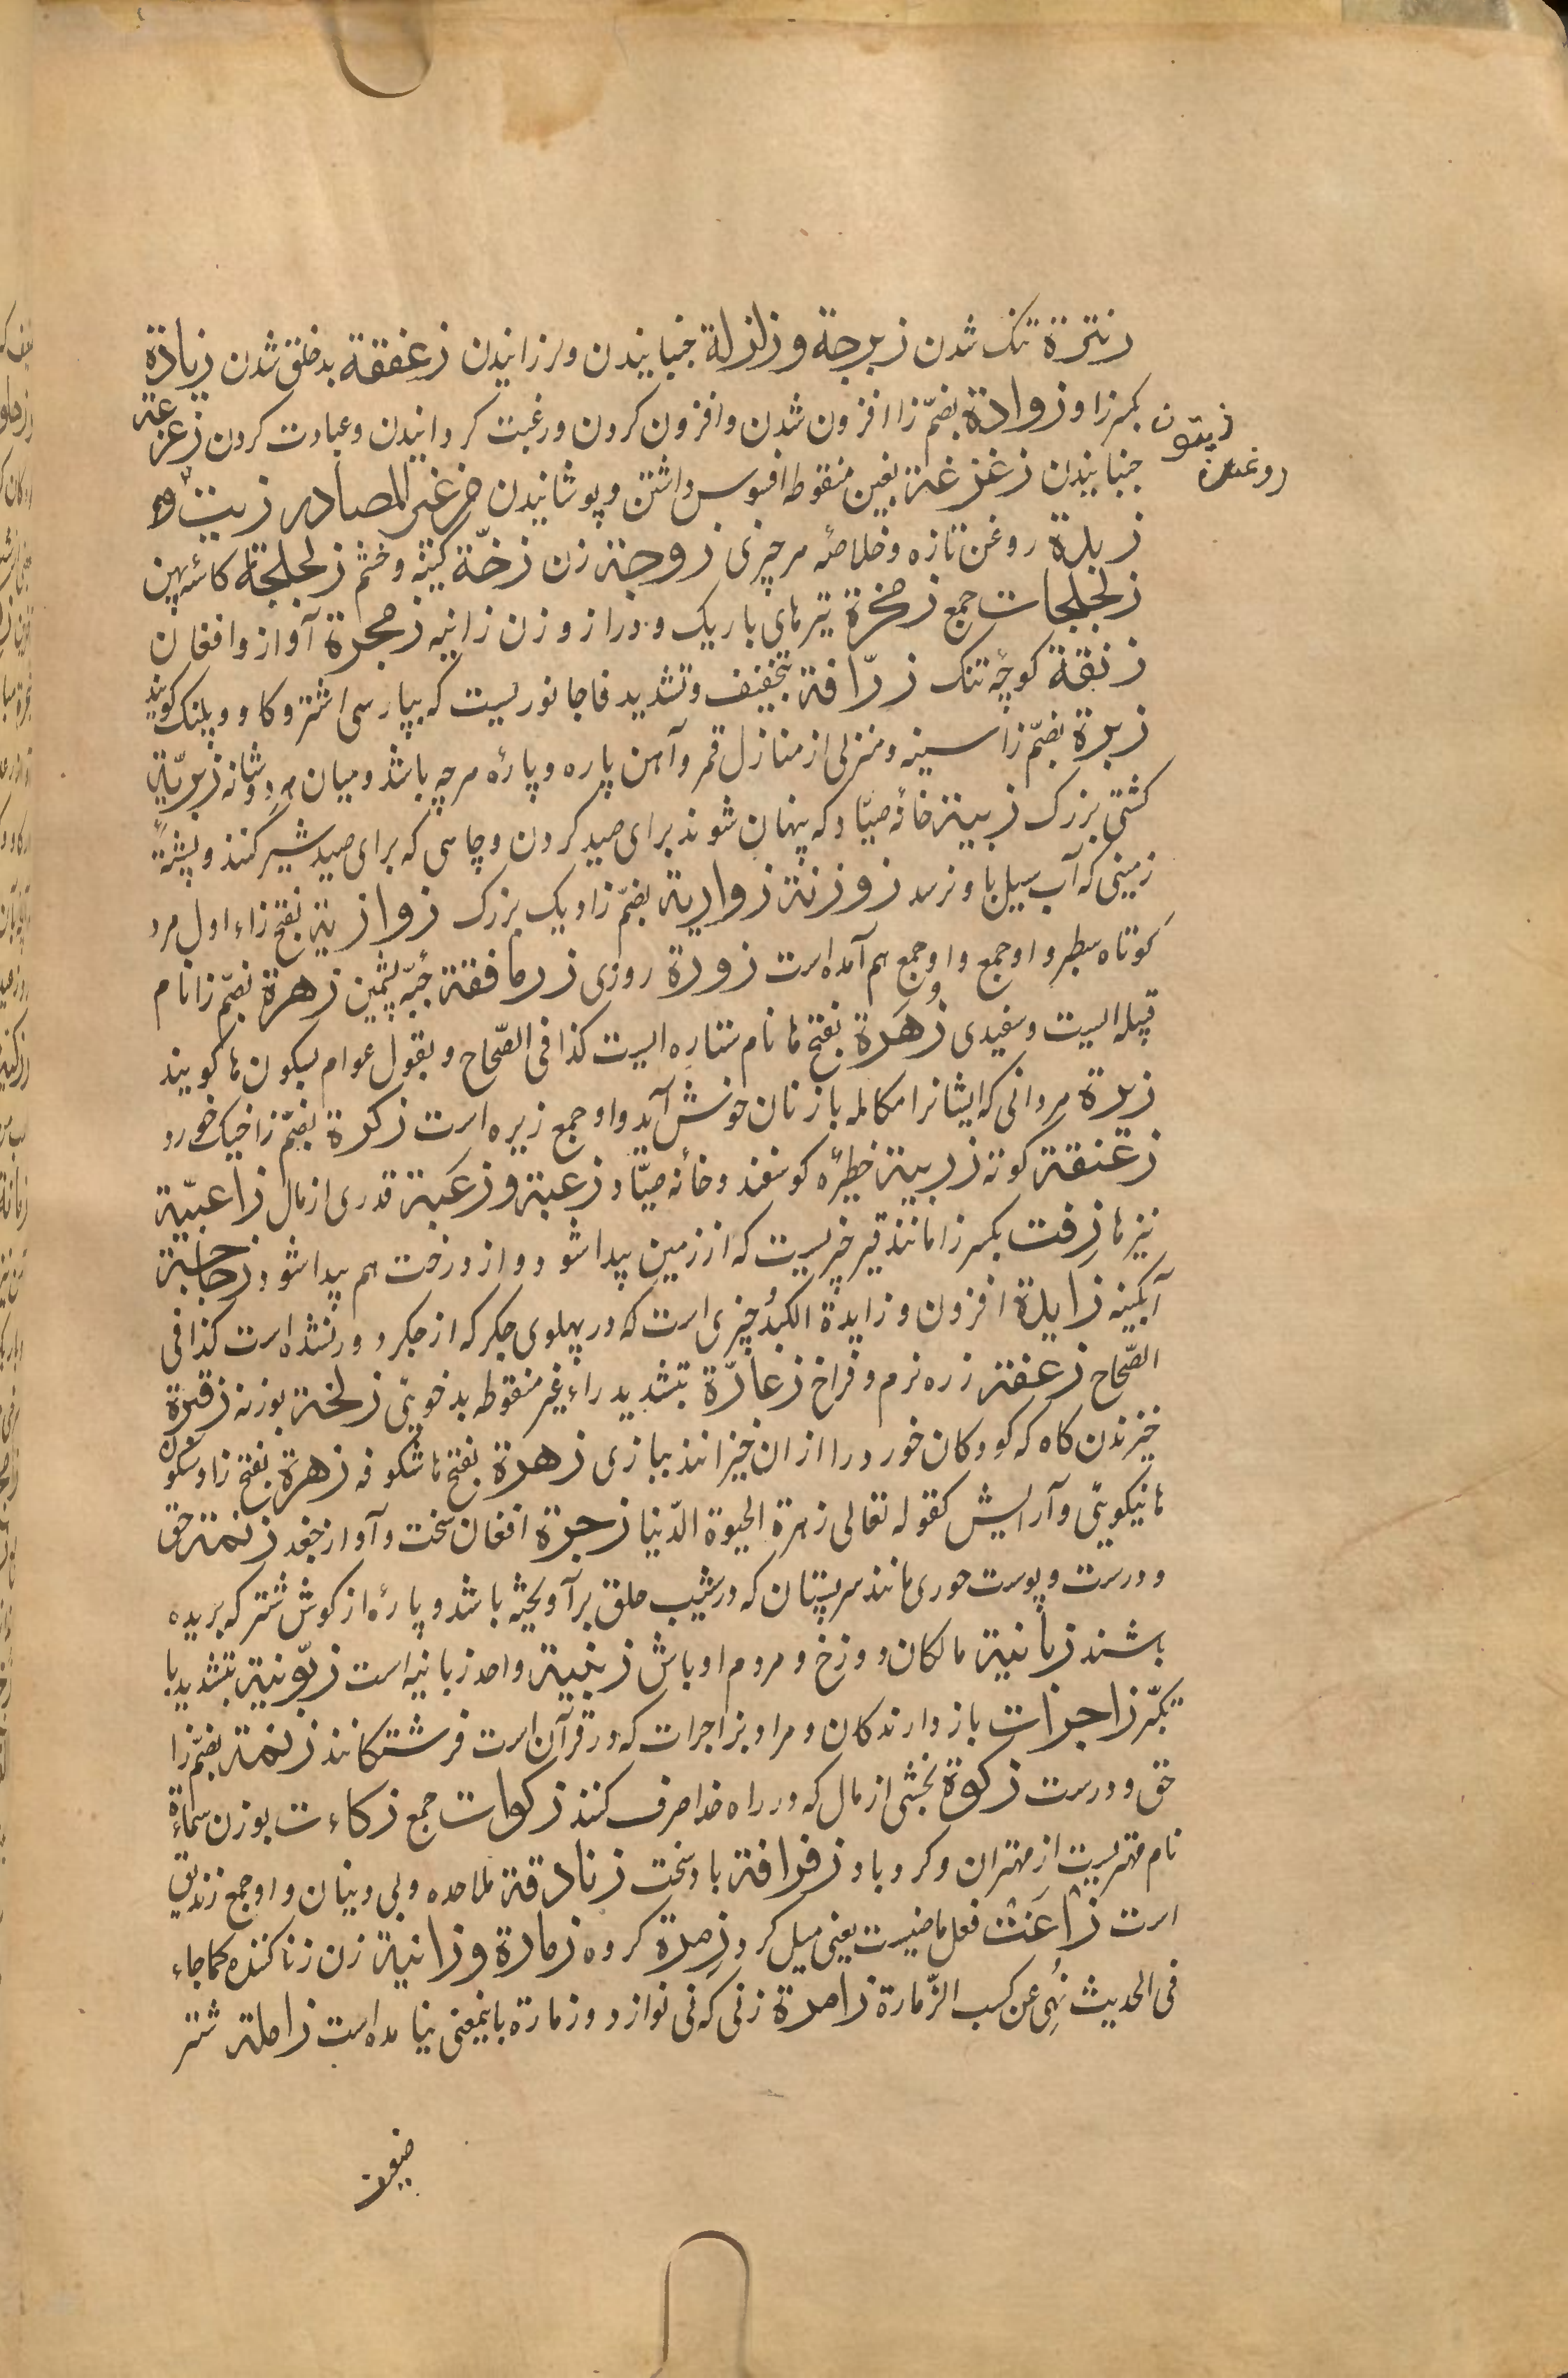 زنترة تنک شدن زبرجة و زلزلة جنبانیدن ولرزانیدن زعفقة بدخلق شدن زیادة
بکسر زا و زوادة بضمّ زا افزون شدن وافزون کردن ورغبت کردانیدن وعبادت کردن زعزعة
زیتون
روغن
جنبانیدن زغزغة بغین منقوطه افسوس داشتن وپوشانیدن من غیر المصادر زیت
زبدة روغن تازه وخلاصهٔ هر چیزی زوجة زن زخّة کینه وخشم زلجلجة کاسهٔ پهن
زلجلجات جمع زمخرة تیرهای باریک ودراز وزن زانیه زمجرة آواز وافغان
زنقة کوچهٔ تنک زرّافة بتخفیف وتشدید فا جانوریست که بپارسی اشتر وکاو وپلنک کویند
زبرة بضمّ زا سینه ومنزلی از منازل قمر وآهن پاره وپارهٔ هر چه باشد ومیان هر دو شانه زبریّة
کشتی بزرک زبیة خانهٔ صیّاد که پنهان شوند برای صید کردن وچاهی که برای صید شیر کنند وپشتهٔ
زمینی که آب سیل باو نرسد زوزنة زوازیة بضمّ زا ویک بزرک زوازیة بفتح زاء اول مرد
کوتاه سطبر و او جمع واوجمع هم آمده است زورة روزی زرمافقة جبّهٔ پشمین زهرة بضمّ زا نام
قبیله ایست وسفیدی زُهَرة بفتح ها نام ستاره ایست کذا فی الصّحاح وبقول عوام بسکون ها کویند
زیرة مردانی که ایشانرا مکالمه با زنان خوش آید و او جمع زیره است زکرة بضمّ زا خیک خورد
زعنقة کونه زریبة خطیرهٔ کوسفند وخانهٔ صیّاد زعبة و زکبة قدری از مال زاعبیّة
نیزها زفت بکسر زا مانند قیر چیزیست که از زمین پیدا شود واز درخت هم پیدا شود زجاجة
آبکینه زایدة افزون وزایدة الکبد چیزی است که در پهلوی جکر که از جکر دور نشده است کذا فی
الصّحاح زعفة زره نرم وفراخ زعارّة بتشدید راء غیر منقوطه بدخویی زلخة بوزنه زقرة
خیزندن کاه که کودکان خورد را ازان خیزانند ببازی زهرة بفتح ها شکوفه زهرة بفتح زا وسکون
ها نیکویی وآرایش کقوله تعالی زهرة الحیوة الدّنیا زجرة افغان سخت وآواز جغد زنمة حق
ودرست وپوست خوری مانند سر پستان که در شیب حلق بر آویخته باشد وپارهٔ از کوش شتر که بریده
باشند زبانیة مالکان دوزخ ومردم اوباش زبنیة واحد زبانیه است زبّونیة بتشدید با
تکبّر زاجرات باز دارندکان ومراد بزاجرات که در قرآن است فرشتکانند زنمة بضمّ زا
حق ودرست زکوة بخشی از مال که در راه خدا صرف کنند زکوات جمع زکاءت بوزن سماءة
نام مهتریست از مهتران وکرد باد زفزافة باد سخت زنادقة ملاحده وبی دینان و او جمع زندیق
است زاغت فعل ماضیست یعنی میل کرد زمرة کروه زمارة و زانیة زن زنا کننده کما جاء
فی الحدیث نُهِی عن کسب الزّمارة زامرة زنی که نی نوازد وزمارة باینمعنی نیامده است زاملة شتر
ضیعن